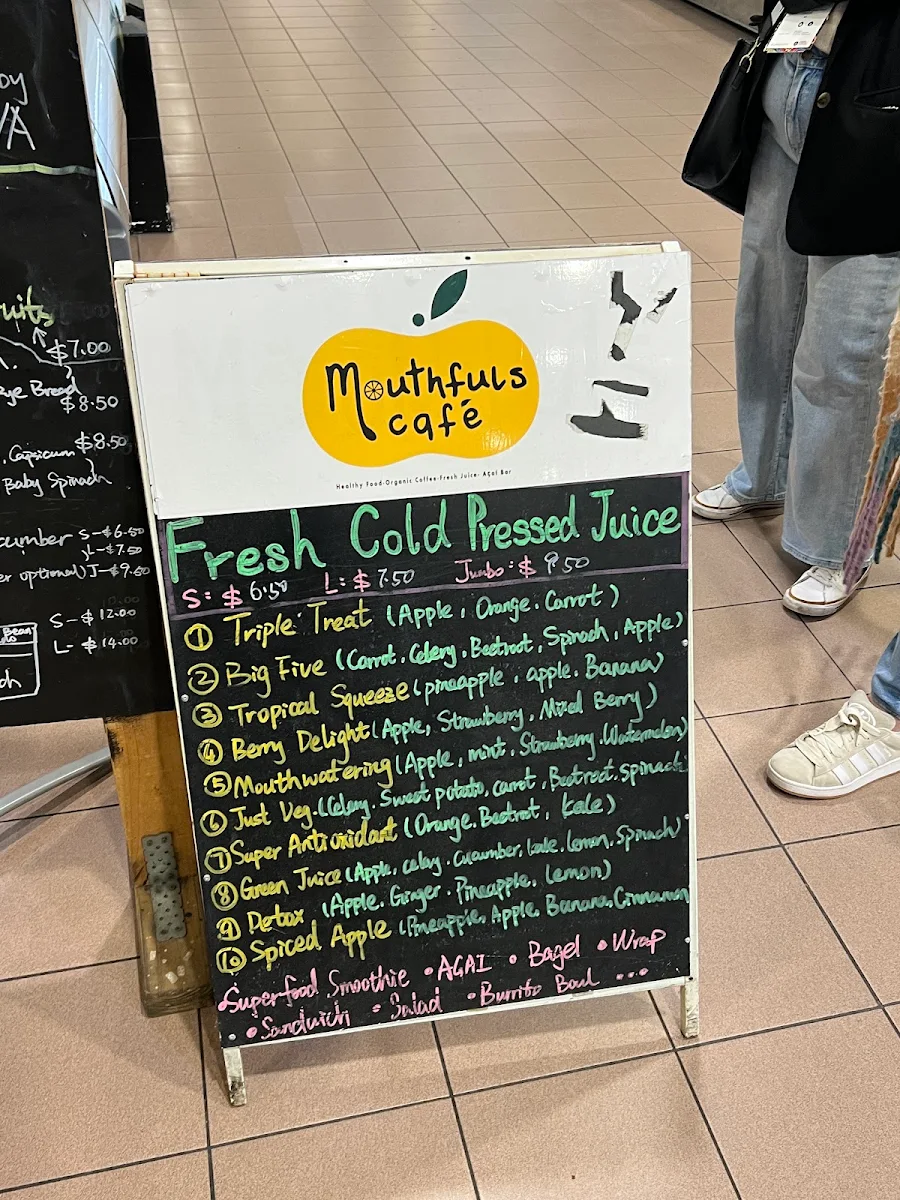 oy
VA
uits
$7.00
ye Bread
$8.50
, Capsicum $8.50
Baby Spinach
cumber S-$6.50
L-$7.50
er optional) J-$9.50
S-$12.00
L-$14.00
Mouthfuls
café
Healthy Food-Organic Coffee-Fresh Juice- Açai Bar
Fresh Cold Pressed Juice
S: $ 6.50 L: $ 7.50 Jumbo: $ 9.50
① Triple Treat (Apple, Orange. Carrot)
② Big Five (Carrot. Celery. Beetroot, Spinach, Apple)
③ Tropical Squeeze (pineapple, apple. Banana)
④ Berry Delight (Apple, Strawberry, Mixed Berry)
⑤ Mouthwatering (Apple, mint, Strawberry, Watermelon)
⑥ Just Veg. (Celery. Sweet potato, carrot, Beetroot, spinach
⑦ Super Antioxidant (Orange. Beetroot, kale)
⑧ Green Juice (Apple, celery. cucumber, kale, lemon, Spinach)
⑨ Detox (Apple. Ginger. Pineapple, Lemon)
⑩ Spiced Apple (Pineapple, Apple, Banana, Cinnamon
•Superfood Smoothie •AÇAI • Bagel •Wrap
•Sandwich • Salad •Burrito Boul ...